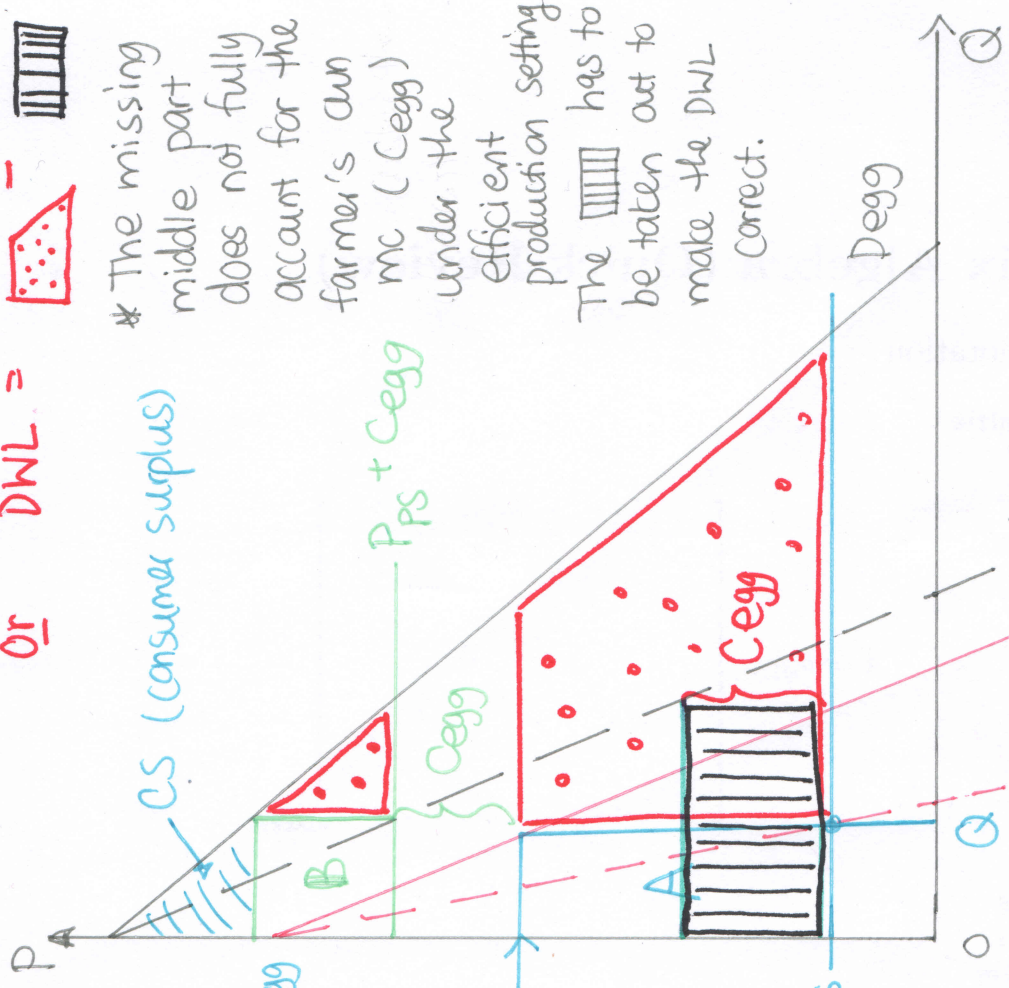 Or DWL = -
* The missing
middle part
does not fully
account for the
farmer's own
mc (Cegg)
under the
efficient
production setting
The has to
be taken out to
make the DWL
correct.
P
CS (consumer surplus)
B
PPS + Cegg
Cegg
A
Cegg
Degg
O
Q
Q